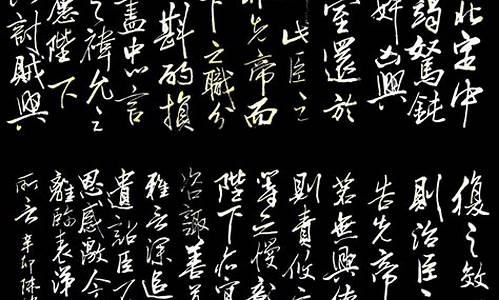 北定中
竭駑鈍
奸凶興
室還於
此臣之
先帝而
下之職分
斟酌損
盡忠言
之禕允之
陛下
討賊興
復之效
則治臣
告先帝
若無興德
則責攸之
等之慢
陛下亦宜
咨諏善
雅言深追
遺詔臣不
恩感激今
離臨表涕
所云 辛卯